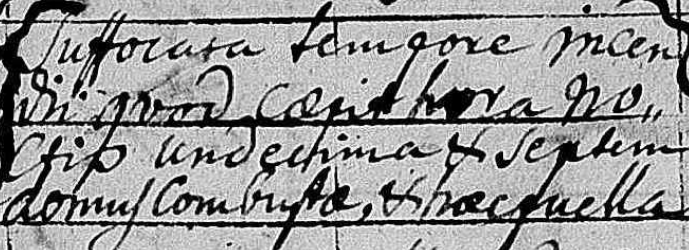 Suffocata tempore incen
dii quod cæpit hora no„
ctis undecima & septem
domus combustæ, & hæc puella